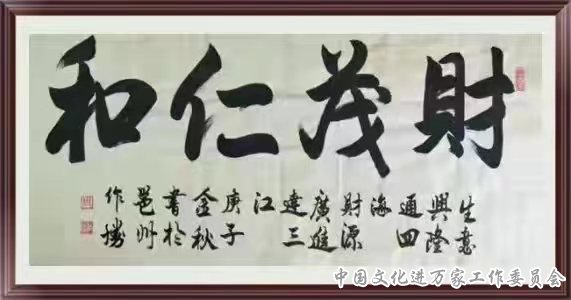 財茂仁和
生意
興隆
通四
海
財源
廣進
達三
江
庚子
金秋
書於
邕州
作勝
中国文化进万家工作委员会